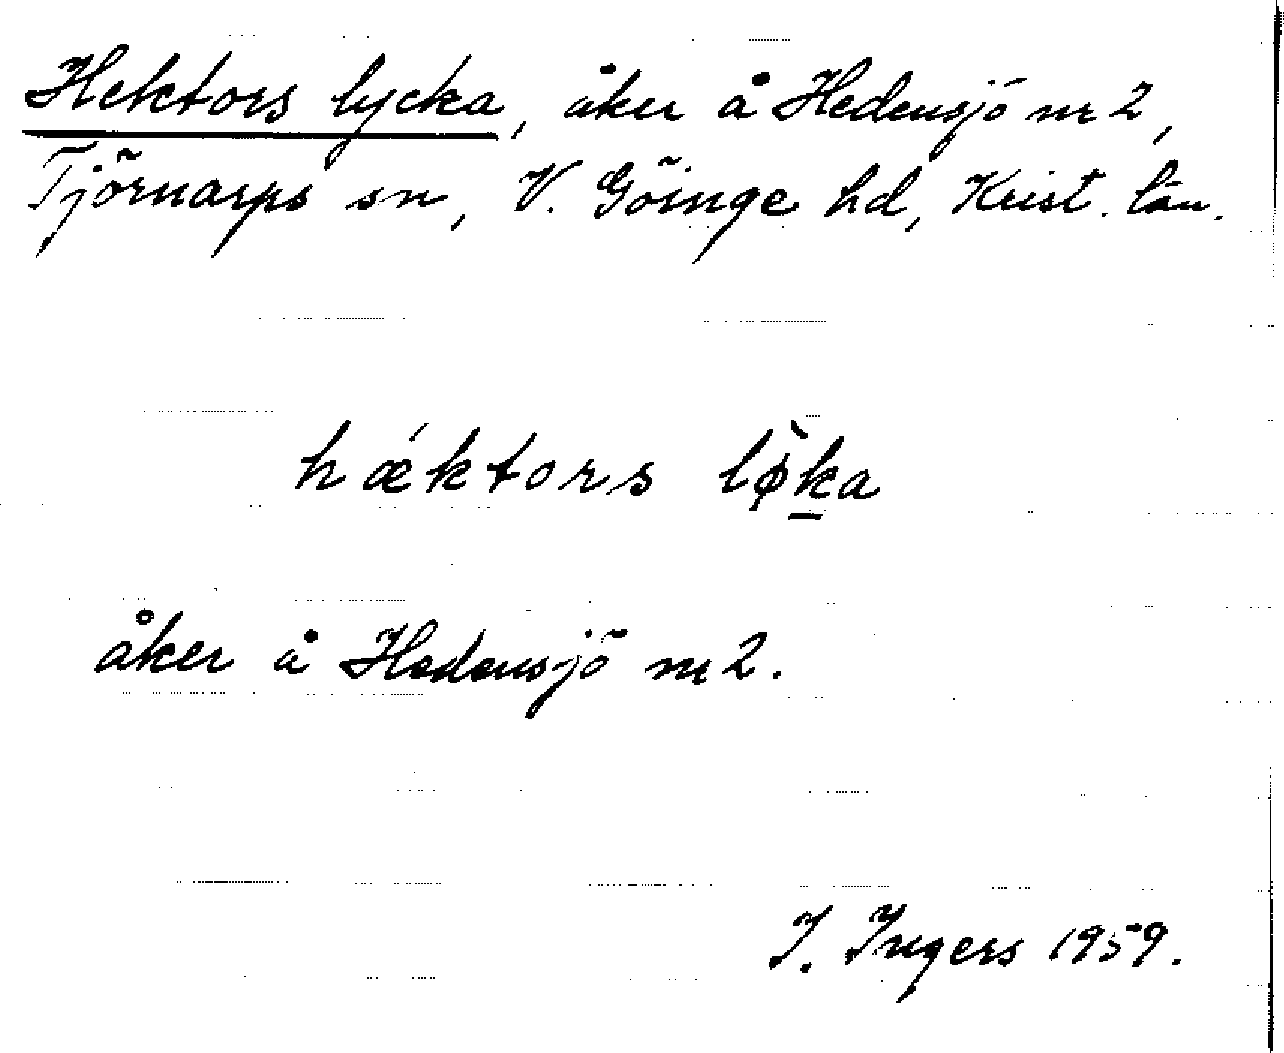 Hektors lycka, åker å Hedensjö nr 2,
Tjörnarps sn, V. Göinge hd, Krist. län.
hǽktors lø̀ḵa
åker å Hedensjö nr 2.
I. Ingers 1959.